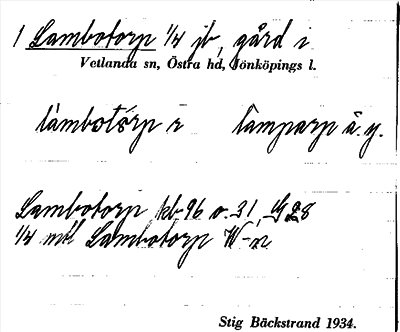 1 Lambotorp 1/4 jb, gård i
Vetlanda sn, Östra hd, Jönköpings l.
làmbotórp r lamparp ä. y.
Lambotorp jb 96 o. 31, G 28
1/4 mtl Lambotorp W-n
Stig Bäckstrand 1934.